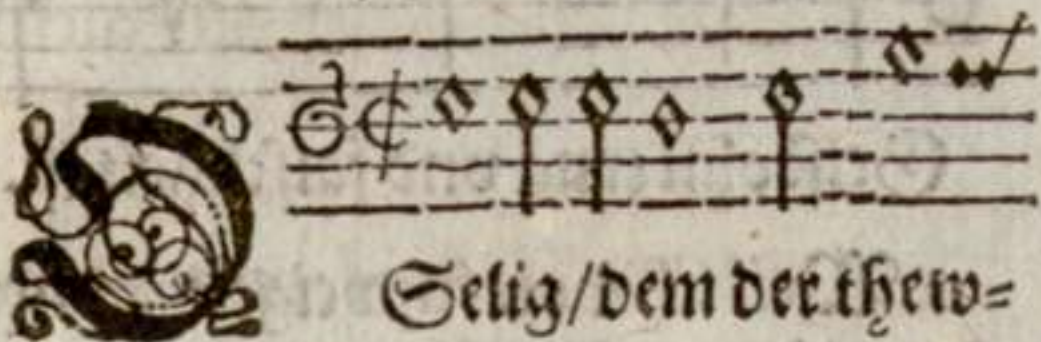 O Selig/dem der thew=